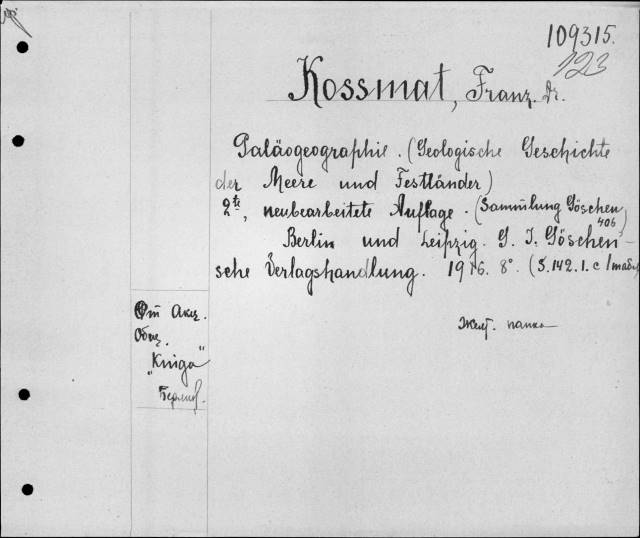 109315.
123
Kossmat, Franz. Dr.
Paläogeographie. (Geologische Geschichte
der Meere und Festländer)
2te, neubearbeitete Auflage. (Sammlung Göschen
406)
Berlin und Leipzig. G. J. Göschen-
sche Verlagshandlung. 1916. 8°. (S. 142. 1. c
От Акц.
Общ.
"Kniga"
Берлин.
папка